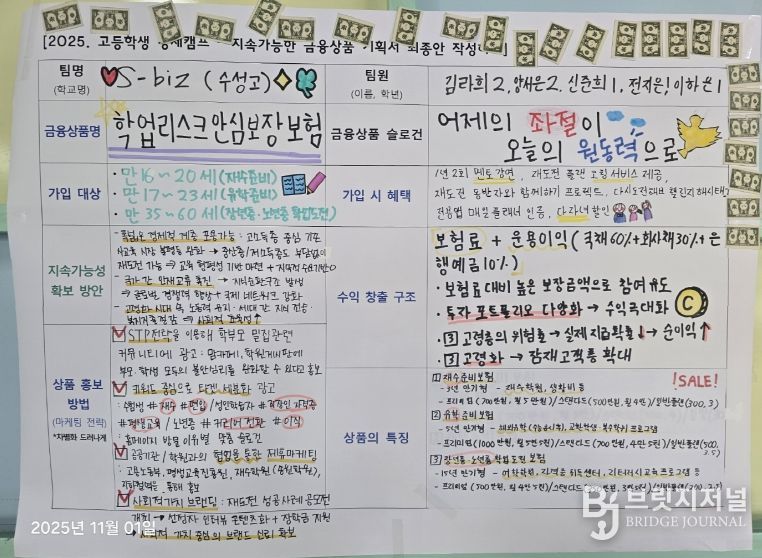 [2025. 고등학생 경제캠프 - 지속가능한 금융상품 기획서 최종안 작성하기]
팀명
(학교명)
S-biz (수성고)
팀원
(이름, 학년)
김라희 2, 양서은 2, 신준희 1, 전지은, 이하은 1
금융상품명
학업리스크안심보장보험
금융상품 슬로건
어제의 좌절이
오늘의 원동력으로
가입 대상
• 만 16~20세 (재수준비)
• 만 17~23세 (유학준비)
• 만 35~60세 (장년층·노년층 학업도전)
가입 시 혜택
1년 2회 멘토강연, 재도전 플랜 코칭 서비스 제공,
재도전 동반자와 함께하기 프로젝트,
매일 플래너 인증, 다자녀할인
지속가능성
확보 방안
- 폭넓은 경제적 계층 포용가능 : 고소득층 중심 기존
사교육 시장 불평등 완화 → 중산층/저소득층도 부담없이
재도전 가능 → 교육 형평성 기반 마련 + 지속적 수요기반
- 국가 간 인재교류 촉진 → 지식순환구조 형성
→ 글로벌 경쟁력 향상 + 국제 네트워크 강화
→ 사회적 효용성↑
수익 창출 구조
보험료 + 운용이익 (국채 60% + 회사채 30% + 은
행예금 10%)
• 보험료 대비 높은 보장금액으로 참여 유도
• 투자 포트폴리오 다양화 → 수익극대화
• 3 고령층의 위험률 → 실제 지급확률↓ → 순이익↑
• 3 고령화 → 잠재고객층 확대
상품 홍보
방법
(마케팅 전략)
*차별화 드러나게
STP전략을 이용해 학부모 밀집관련
커뮤니티에 광고 : 맘카페, 학원게시판에
부모·학생 모두의 불안심리를 완화할 수 있다고 홍보
키워드 중심으로 타겟 세분화 광고
: #재수 #편입 /성인학습자 #직장인 자격증
#평생교육 / 노년층 #커리어 전환 #이직
: 홈페이지 방문 이유별 맞춤 슬로건
공공기관 / 학원과의 협업을 통한 제휴마케팅
: 고용노동부, 평생교육진흥원, 재수학원 (종원학원),
통해 홍보
사회적가치 브랜딩 : 재도전 성공사례 공모전
개최 → 선정자 인터뷰 콘텐츠화 + 장학금 지원
→ 사회적 가치 중심의 브랜드 신뢰 확보
상품의 특징
!SALE!
1 재수준비보험
- 3년 만기형 - 재수학원, 생활비 등
- 프리미엄 (700만원, 월 5만원) / 스탠다드 (500만원, 월 4만) / 일반플랜 (300, 3)
2 유학준비보험
- 5년 만기형
- 프리미엄 (1000만원, 월 5만5천) / 스탠다드 (700만원, 4만 5천) / 일반플랜 (500, 3.5)
3 장년층·노년층 학업도전 보험
- 15년 만기형 - 어학학원, 자격증 취득센터, 리터러시교육프로그램 등
- 프리미엄 (500만원, 월 4만5천) / 스탠다드
2025년 11월 01일
BJ 브릿지저널
BRIDGE JOURNAL